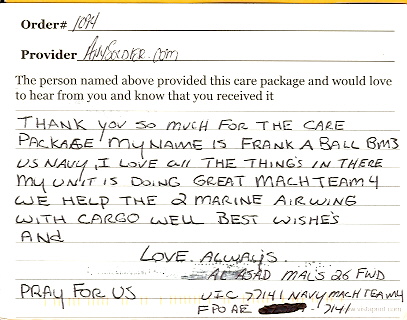 Order# 1094
Provider AnySoldier.com
The person named above provided this care package and would love
to hear from you and know that you received it
THANK you so much FOR THE CARE
PACKAGE MY NAME IS FRANK A BALL BM3
US NAVY, I LOVE all THE THING'S IN THERE
MY UNIT IS DOING GREAT MACHTEAM4
WE HELP THE 2 MARINE AIRWING
WITH CARGO WELL BEST WISHES
AND
LOVE. ALWAYS.
AL ASAD MAL'S 26 FWD
PRAY FOR US
UIC 77141 NAVY MACH TEAM4
FPO AE 7141